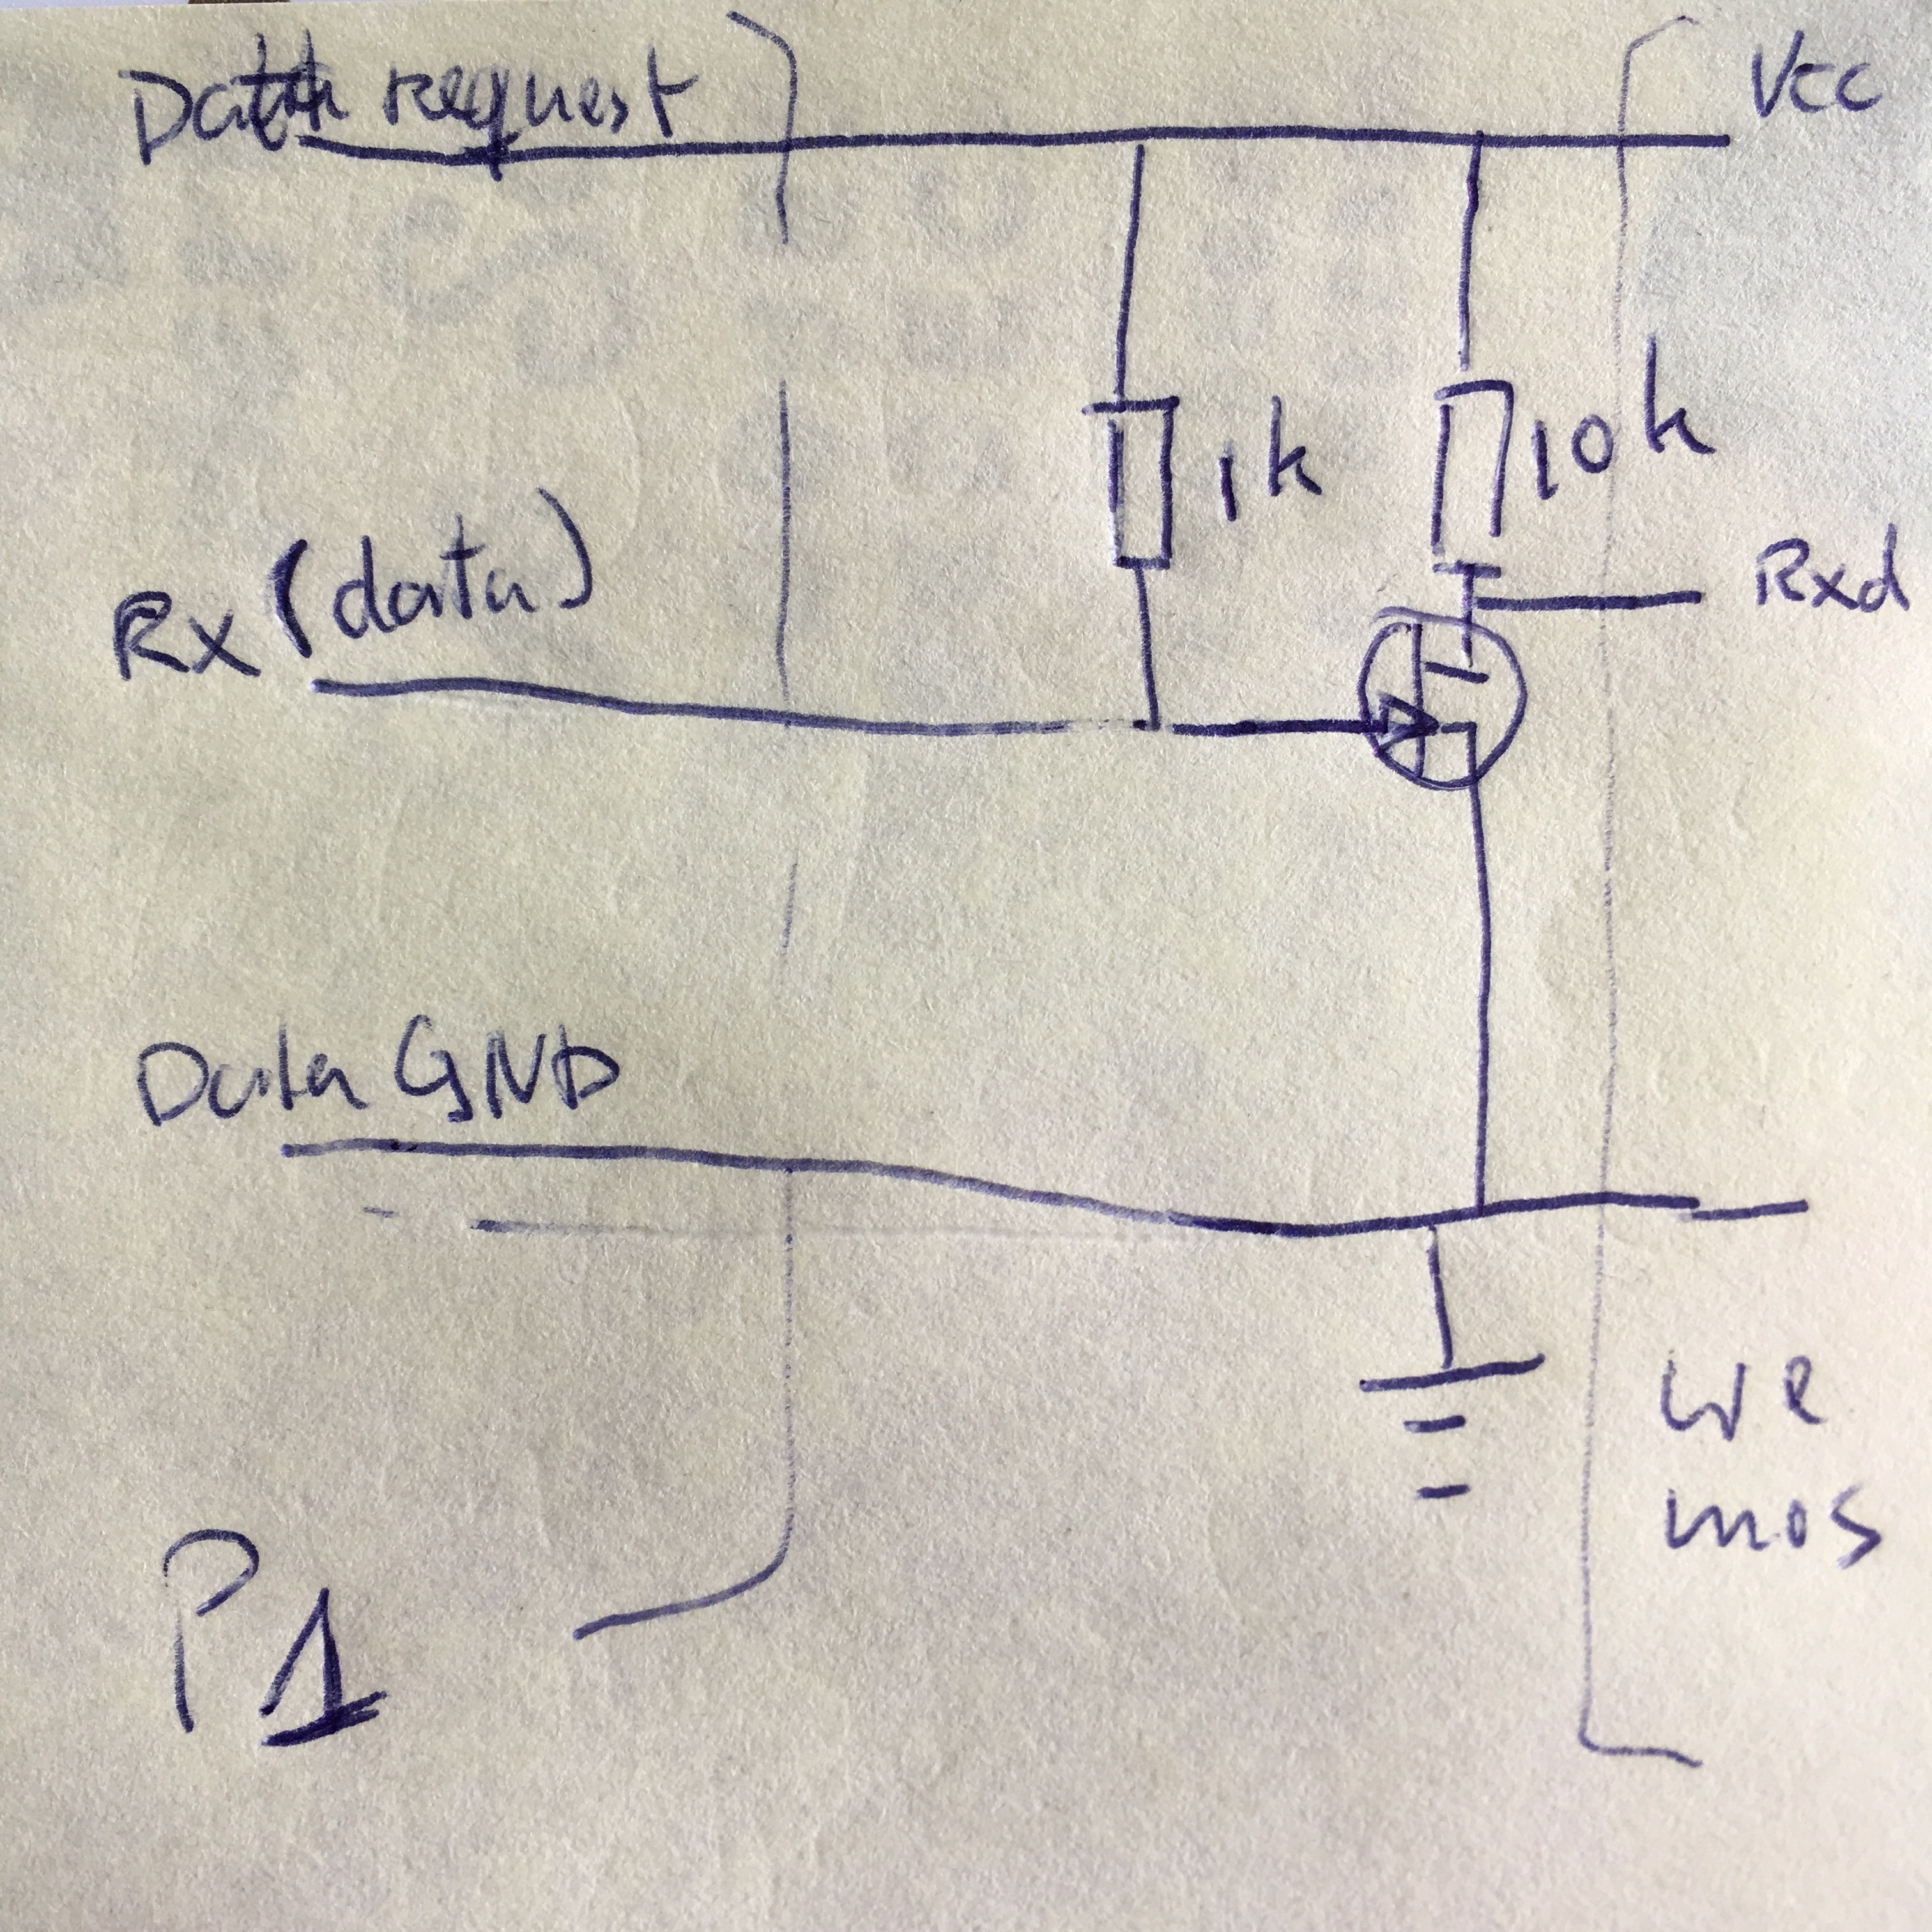 Data request
Vcc
1k
10k
Rx (data)
Rxd
Data GND
We
mos
P1